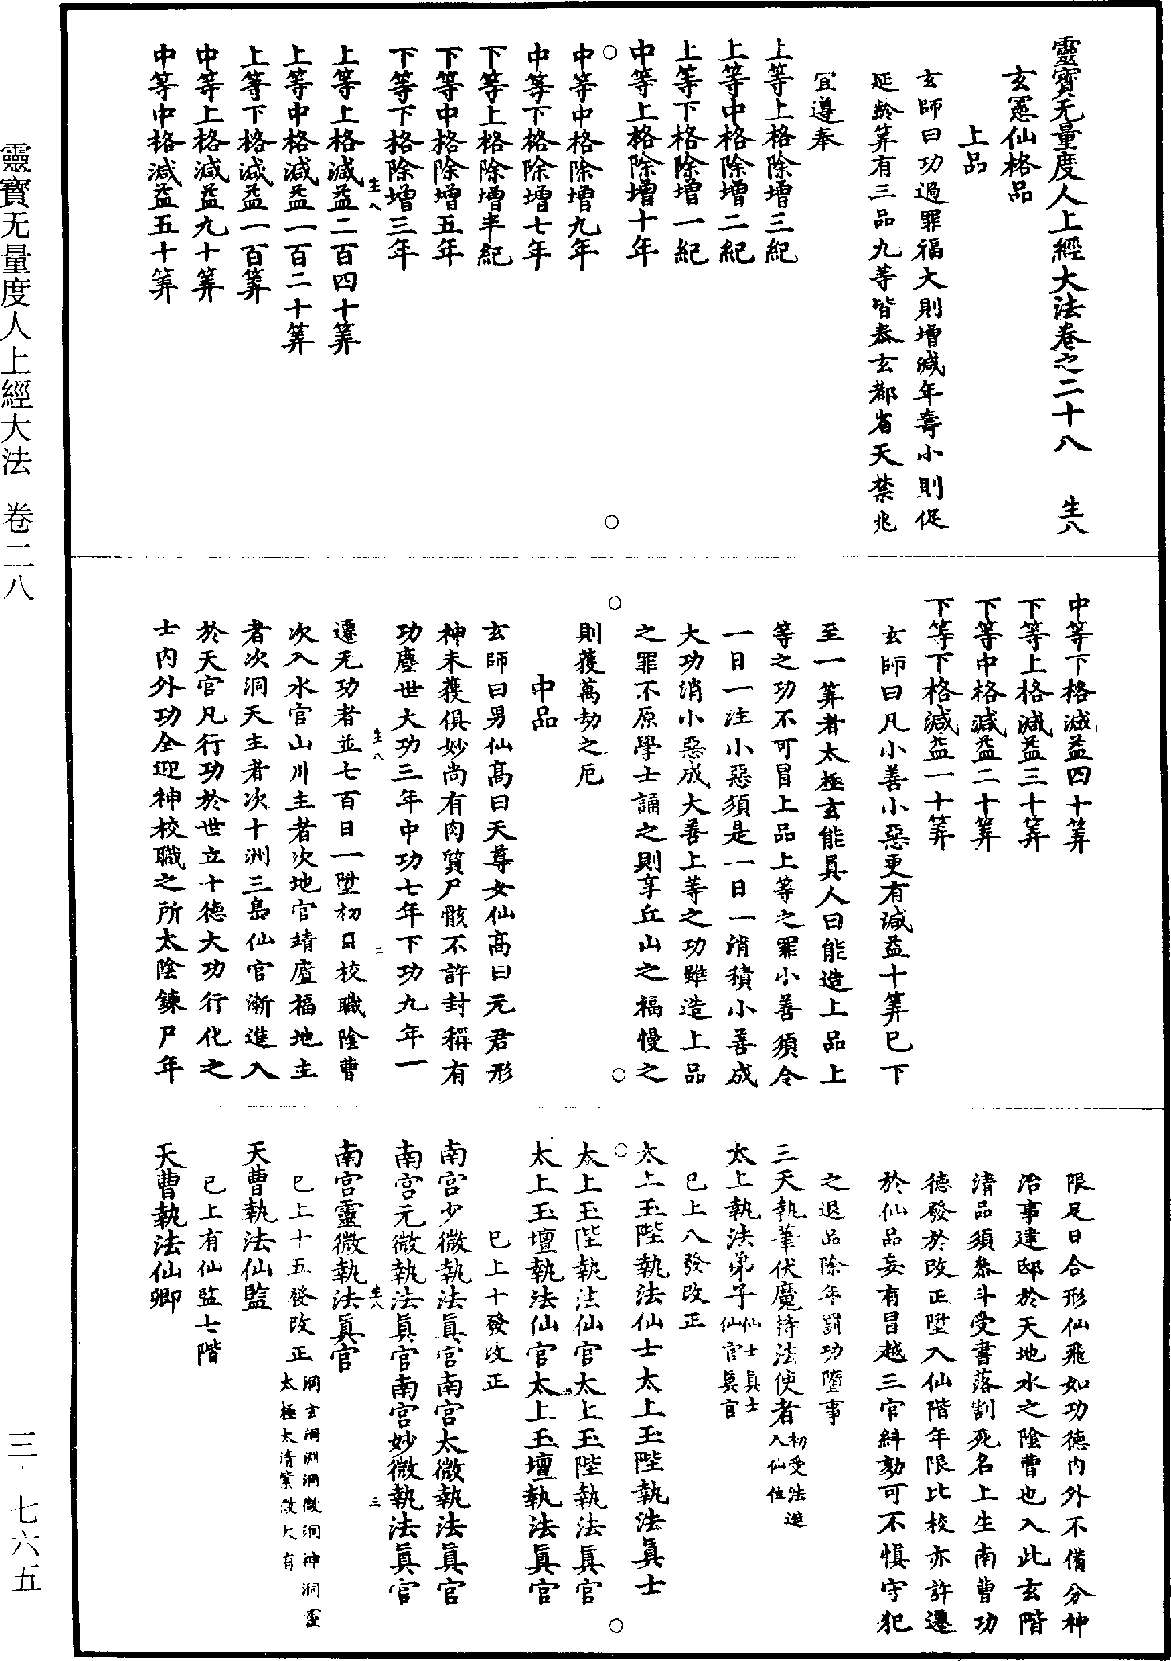 靈寶无量度人上經大法卷之二十八　生八
玄憲仙格品
上品
玄師曰功過罪福大則增減年壽小則促
延齡筭有三品九等皆泰玄都省天禁兆
宜遵奉
上等上格除增三紀
上等中格除增二紀
上等下格除增一紀
中等上格除增十年
中等中格除增九年
中等下格除增七年
下等上格除增半紀
下等中格除增五年
下等下格除增三年
生八
上等上格減益二百四十筭
上等中格減益一百二十筭
上等下格減益一百筭
中等上格減益九十筭
中等中格減益五十筭
中等下格減益四十筭
下等上格減益三十筭
下等中格減益二十筭
下等下格減益一十筭
玄師曰凡小善小惡更有減益十筭已下
至一筭者太極玄能眞人曰能造上品上
等之功不可冒上品上等之罪小善須令
一日一注小惡須是一日一消積小善成
大功消小惡成大善上等之功雖造上品
之罪不原學士誦之則享丘山之福慢之
則獲萬劫之厄
中品
玄師曰男仙高曰天尊女仙高曰元君形
神未獲俱妙尚有肉質尸骸不許封稱有
功塵世大功三年中功七年下功九年一
生八　二
遷无功者並七百日一陞初日校職陰曹
次入水官山川主者次地官靖廬福地主
者次洞天主者次十洲三島仙官漸進入
於天官凡行功於世立十德大功行化之
士內外功全迎神校職之所太陰鍊尸年
限足日合形仙飛如功德內外不備分神
治事建邸於天地水之陰曹也入此玄階
清品須泰斗受書落割死名上生南曹功
德發於改正陞入仙階年限比校亦許遷
於仙品妄有冒越三官糾劾可不慎守犯
之退品除年罰功墮事
三天執筆伏魔持法使者初受法遊入仙位
太上執法弟子仙士眞士仙官眞官
已上八發改正
太上玉陛執法仙士太上玉陛執法眞士
太上玉陛執法仙官太上玉陛執法眞官
太上玉壇執法仙官太上玉壇執法眞官
已上十發改正
南宮少微執法眞官南宮太微執法眞官
南宮元微執法眞官南宮妙微執法眞官
生八　三
南宮靈微執法眞官
已上十五發改正洞玄洞淵洞微洞神洞靈太極太清紫微大有
天曹執法仙監
已上有仙監七階
天曹執法仙卿
靈寶无量度人上經大法　卷二八
三·七六五